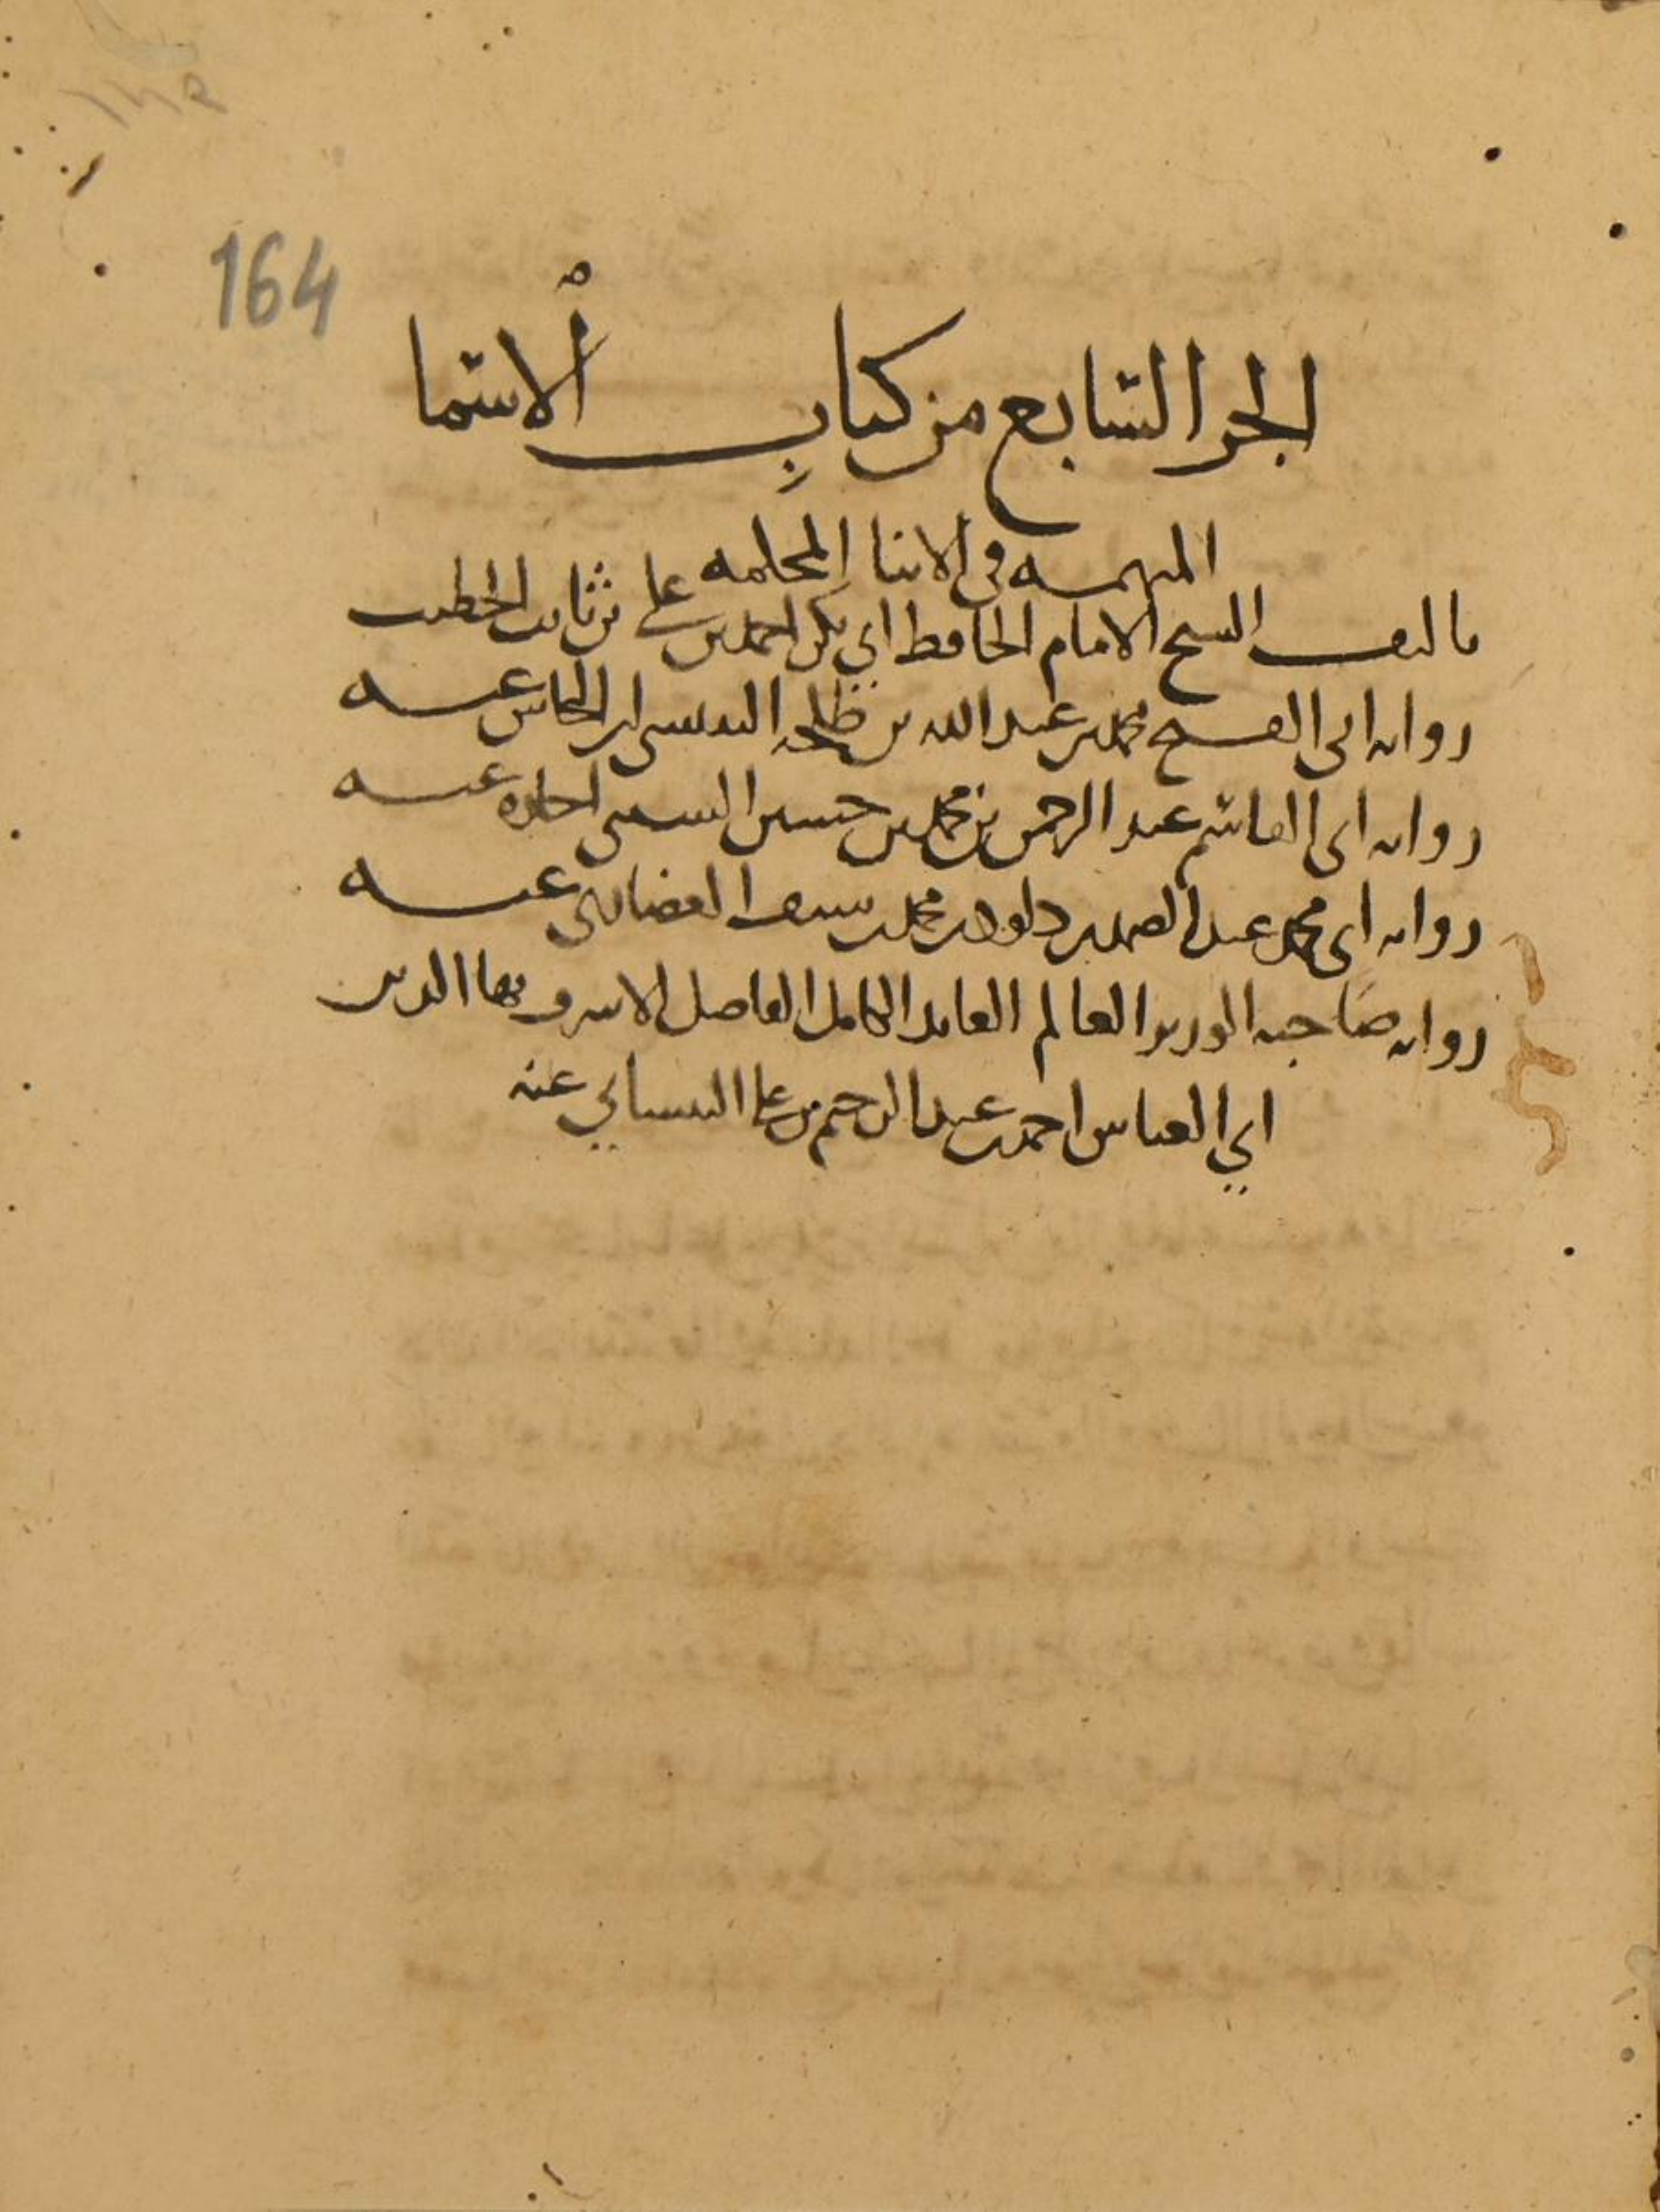 164
الجز السابع من كتاب الاسما
المبهمه في الانبا المحكمه
تاليف الشيخ الامام الحافظ ابي بكر احمد بن علي بن ثابت الخطيب
روايه ابي الفتح محمد بن عبد الله بن طلحه ابن عنه
روايه ابي القاسم عبد الرحمن بن محمد بن حسين السبيى اجازه عنه
روايه ابي محمد عبد الصمد بن داود بن محمد بن سيف الغضايرى عنه
روايه صاحبه الوزير العالم العابد الكامل الفاضل الاشرف بها الدين
ابي العباس احمد بن عبد الرحيم بن علي البيساني عنه